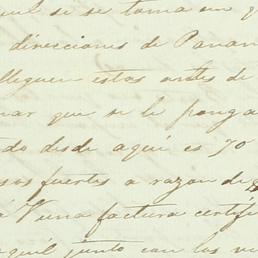 se se toma en q
direcciones de Panam
lleguen estos antes de
nar que se le ponga
do desde aquí es 70
sos fuertes a razon de
á V una factura certifi
aquil junto con los